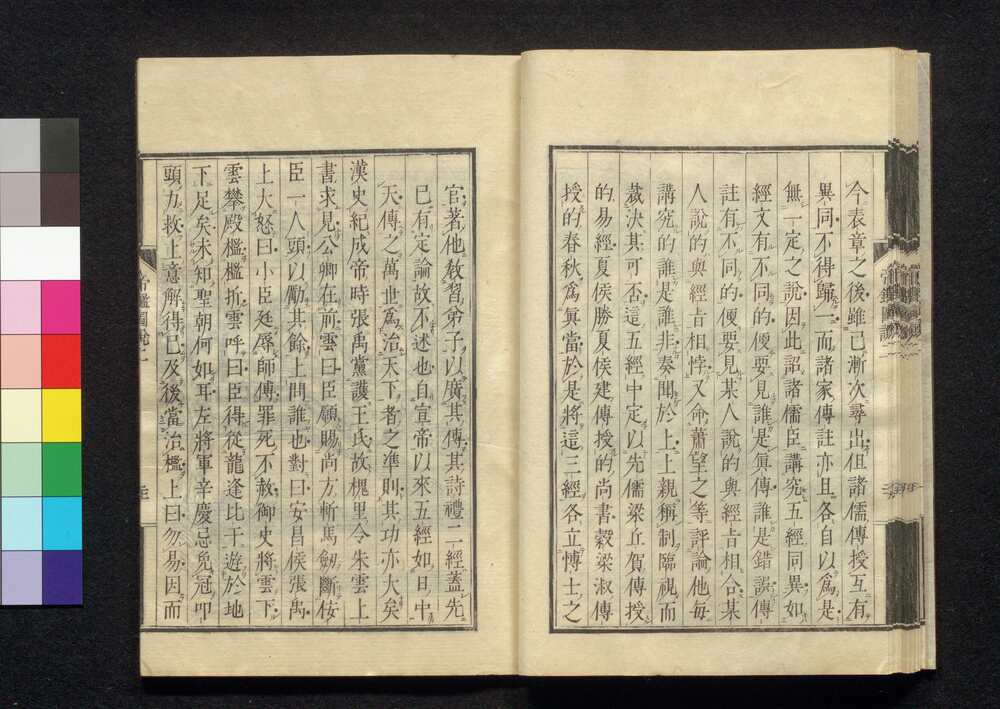 今表章之後雖已漸次尋出但諸儒傳授互有
異同不得歸一而諸家傳註亦且各自以為是
無一定之說因此詔諸儒臣講究五經同異如
經文有不同的便要見誰是眞傳誰是錯誤傳
註有不同的便要見某人說的與經旨相合某
人說的與經旨相悖又命蕭望之等評論他每
講究的誰是誰非奏聞於上上親稱制臨視而
裁決其可否這五經中定以先儒梁丘賀傳授
的易經夏侯勝夏侯建傳授的尚書穀梁淑傳
授的春秋為眞當於是將這三經各立博士之
官著他教習弟子以廣其傳其詩禮二經蓋先
已有定論故不述也自宣帝以來五經如日中
天傳之萬世為治天下者之準則其功亦大矣
漢史紀成帝時張禹黨護王氏故槐里令朱雲上
書求見公卿在前雲曰臣願賜尚方斬馬劒斷佞
臣一人頭以勵其餘上問誰也對曰安昌侯張禹
上大怒曰小臣廷辱師傅罪死不赦御史將雲下
雲攀殿檻檻折雲呼曰臣得從龍逢比干遊於地
下足矣未知聖朝何如耳左將軍辛慶忌免冠叩
頭力救上意解得已及後當治檻上曰勿易因而
帝鑑圖說